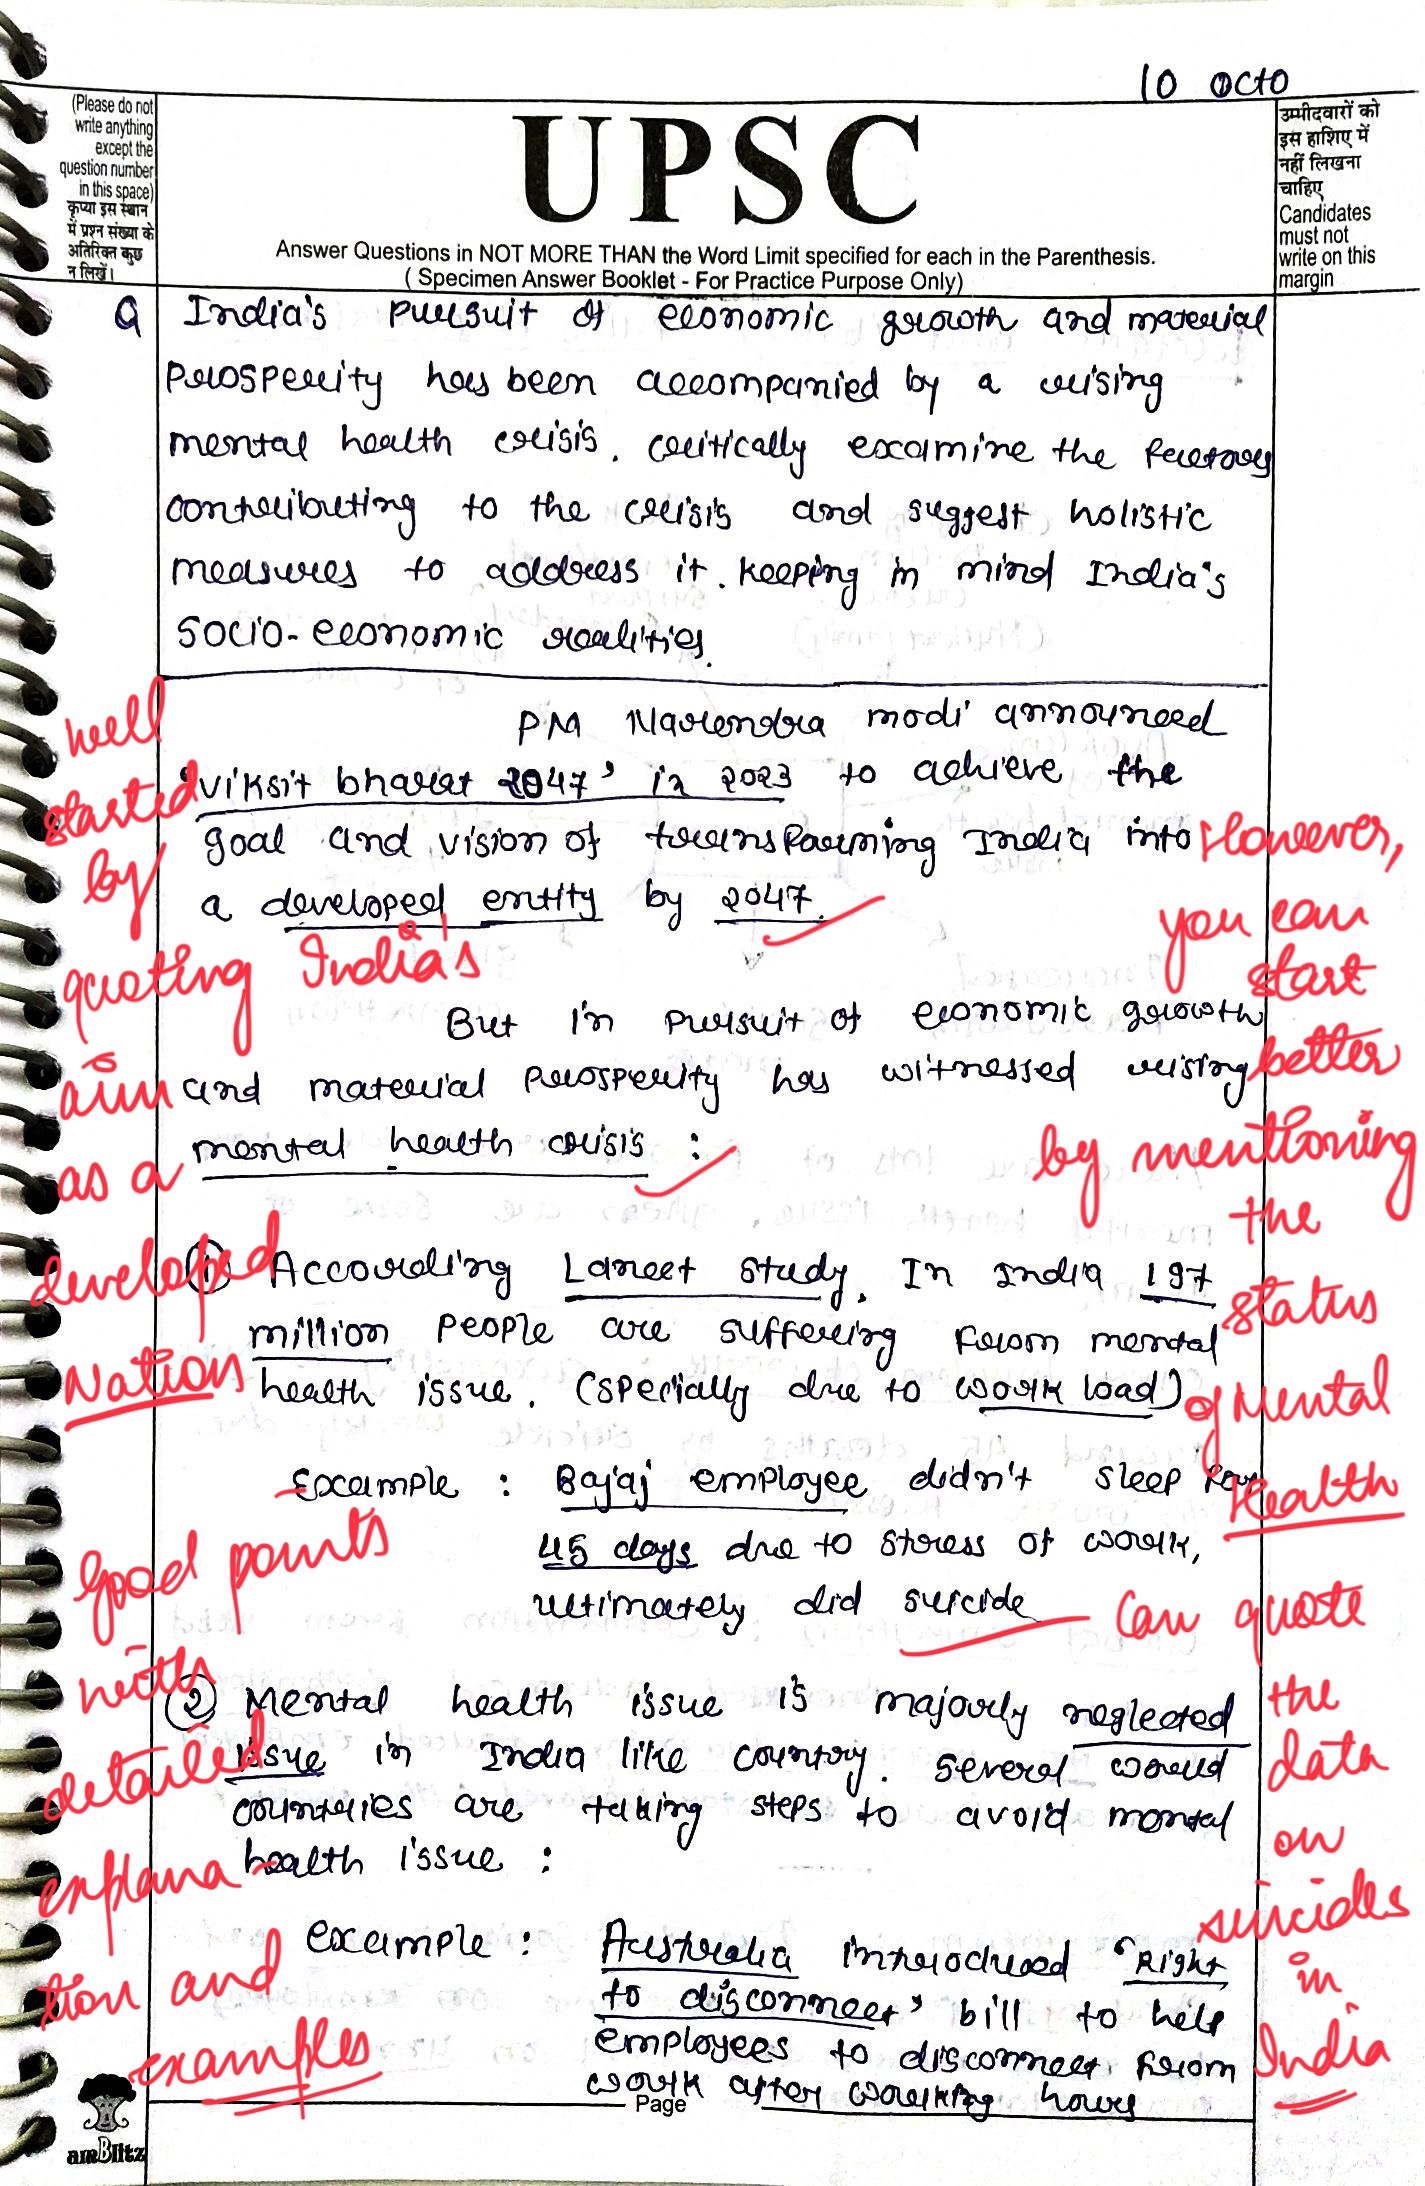 10 Octo
(Please do not
write anything
except the
question number
in this space)
कृप्या इस स्थान
में प्रश्न संख्या के
अतिरिक्त कुछ
न लिखें।
UPSC
Answer Questions in NOT MORE THAN the Word Limit specified for each in the Parenthesis.
( Specimen Answer Booklet - For Practice Purpose Only)
उम्मीदवारों को
इस हाशिए में
नहीं लिखना
चाहिए
Candidates
must not
write on this
margin
Q India's pursuit of economic growth and material
prosperity has been accompanied by a rising
mental health crisis. Critically examine the factors
contributing to the crisis and suggest holistic
measures to address it. keeping in mind India's
socio-economic realities.
PM Narendra modi announced
'viksit bharat 2047' in 2023 to achieve the
goal and vision of transforming India into
a developed entity by 2047.
But in pursuit of economic growth
and material prosperity has witnessed rising
mental health crisis :
① According Lancet study, In India 197
million people are suffering from mental
health issue. (specially due to work load)
Example : Bajaj employee didn't sleep for
45 days due to stress of work,
ultimately did suicide
② Mental health issue is majorly neglected
issue in India like country. Several world
countries are taking steps to avoid mental
health issue :
example : Australia introduced 'Right
to disconnect' bill to help
employees to disconnect from
work after working hours
Well
started
by
quoting India's
aim
as a
developed
Nation
Good points
with
detailed
explana-
tion and
examples
However,
you can
start
better
by mentioning
the
status
of Mental
Health
Can quote
the
data
on
suicides
in
India
Page
amBlitz